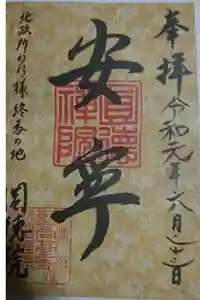 奉拝 令和元年六月二十三日
安寧
圓徳院
北政所ねね様 終焉の地
圓徳院